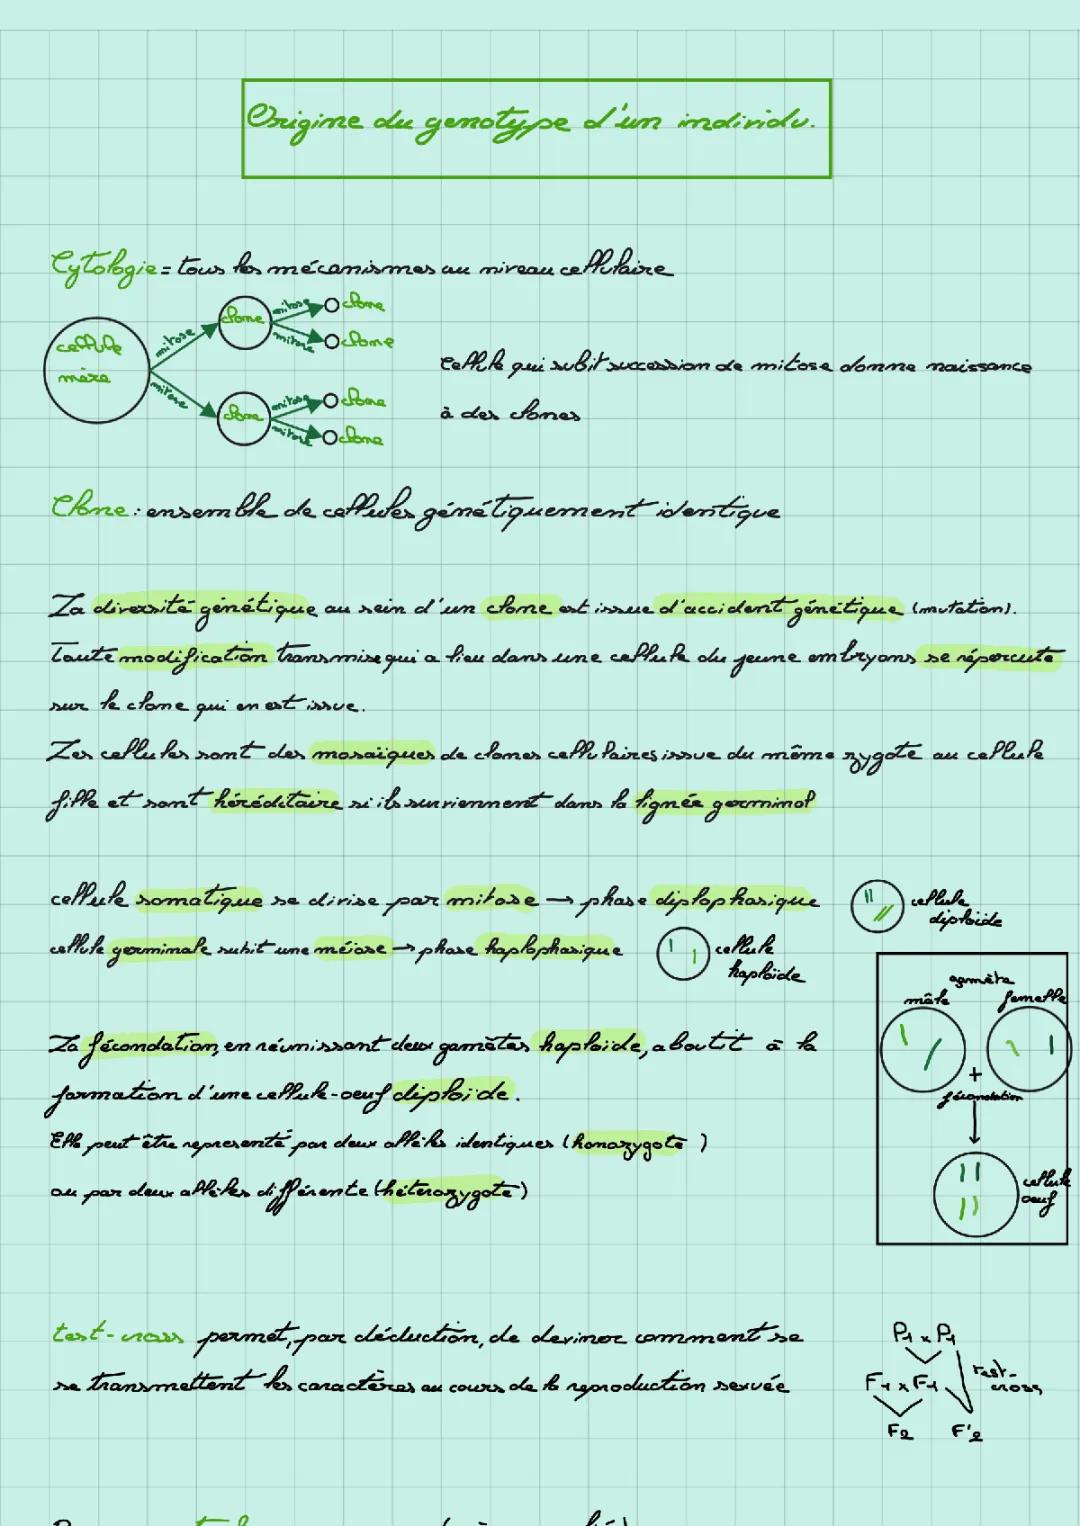 Origine du genotype d'un individu.
Cytologie = tous les mécanismes au niveau cellulaire
cellule mère
mitose
mitose
clone
clone
mitose
mitose
mitose
mitose
clone
clone
clone
clone
cellule qui subit succession de mitose donne naissance
à des clones
Clone : ensemble de cellules génétiquement identique
La diversité génétique au sein d'un clone est issue d'accident génétique (mutation).
Toute modification transmise qui a lieu dans une cellule du jeune embryons se répercute
sur le clone qui en est issue.
Les cellules sont des mosaïques de clones cellulaires issue du même zygote au cellule
fille et sont héréditaire si ils surviennent dans la lignée germinal
cellule somatique se divise par mitose → phase diplophasique
cellule diploïde
cellule germinale subit une méiose → phase haplophasique
cellule haploïde
La fécondation, en réunissant deux gamètes haploïde, aboutit à la
formation d'une cellule-oeuf diploïde.
Elle peut être representé par deux allèles identiques (homozygote)
ou par deux allèles différente (hétérozygote)
gamète
mâle femelle
+
fécondation
cellule oeuf
test-cross permet, par déduction, de deviner comment se
se transmettent les caractères au cours de la reproduction sexuée
P1 x P1
F1 x F1
test-cross
F2 F'2